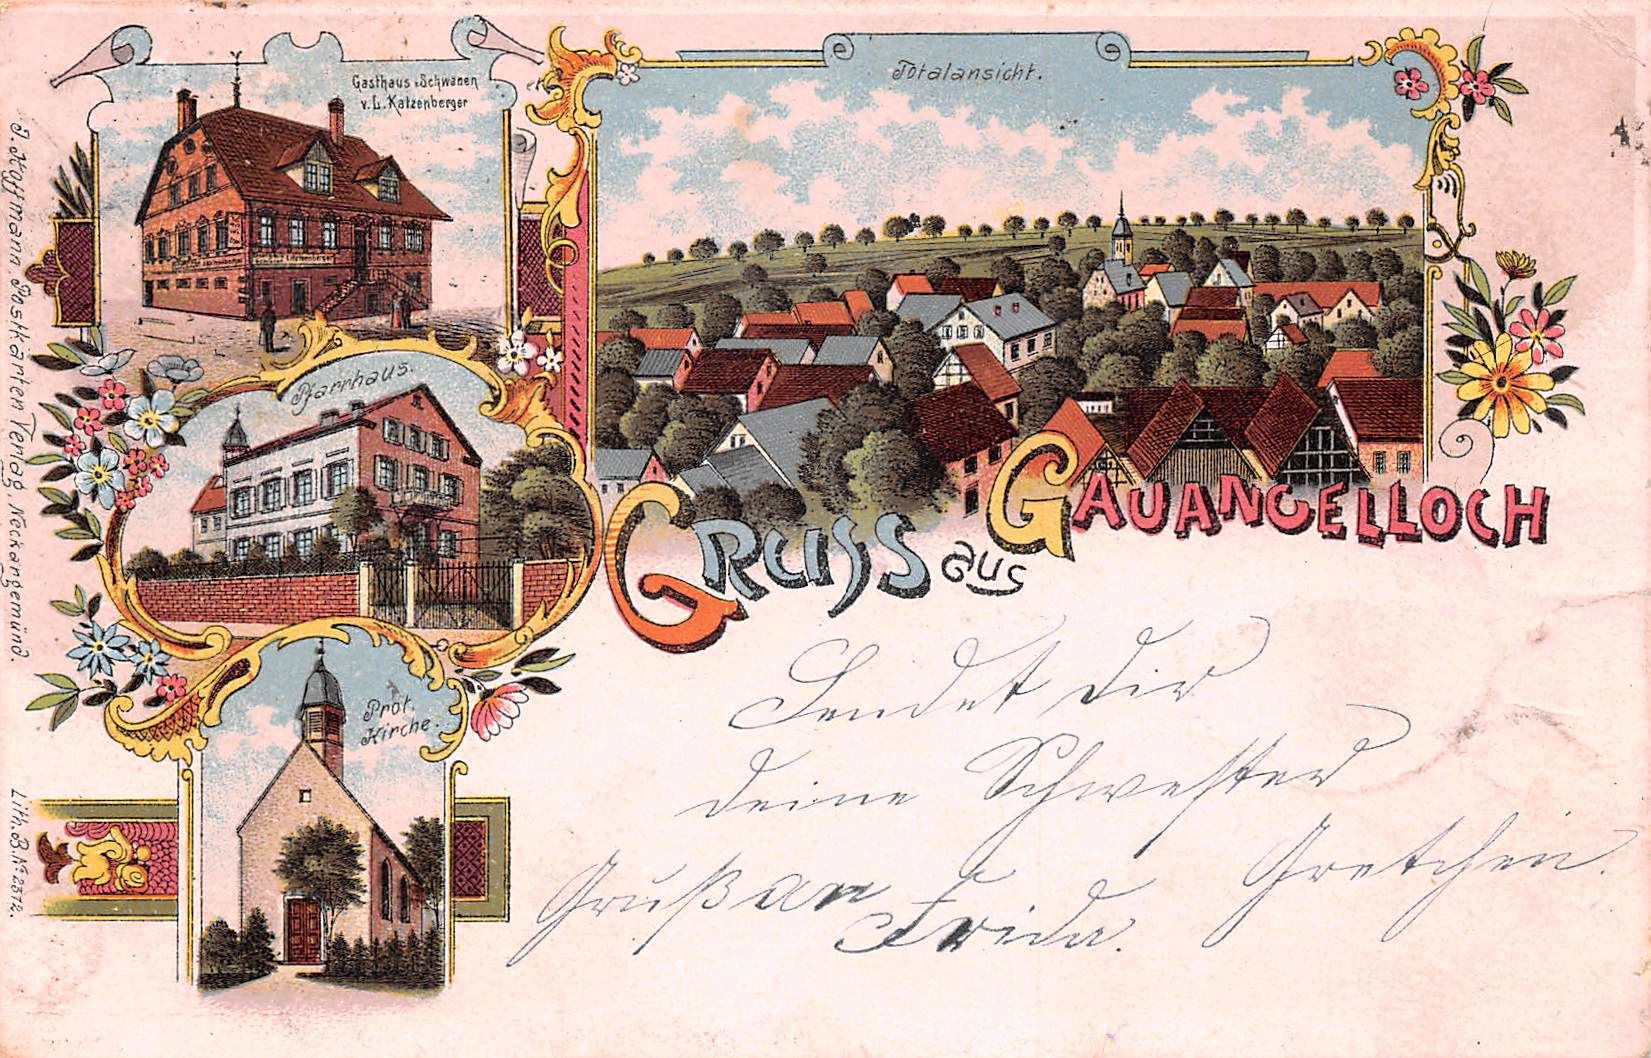 Gasthaus z. Schwanen
v. L. Katzenberger
Totalansicht.
Pfarrhaus.
Prot.
Kirche.
Gruss aus Gauangelloch
J. Hoffmann, Postkarten Verlag, Neckargemünd.
Lith. B. No. 2372.
Sendet dir
deine Schwester
Gretchen.
Gruß an
Frieda.